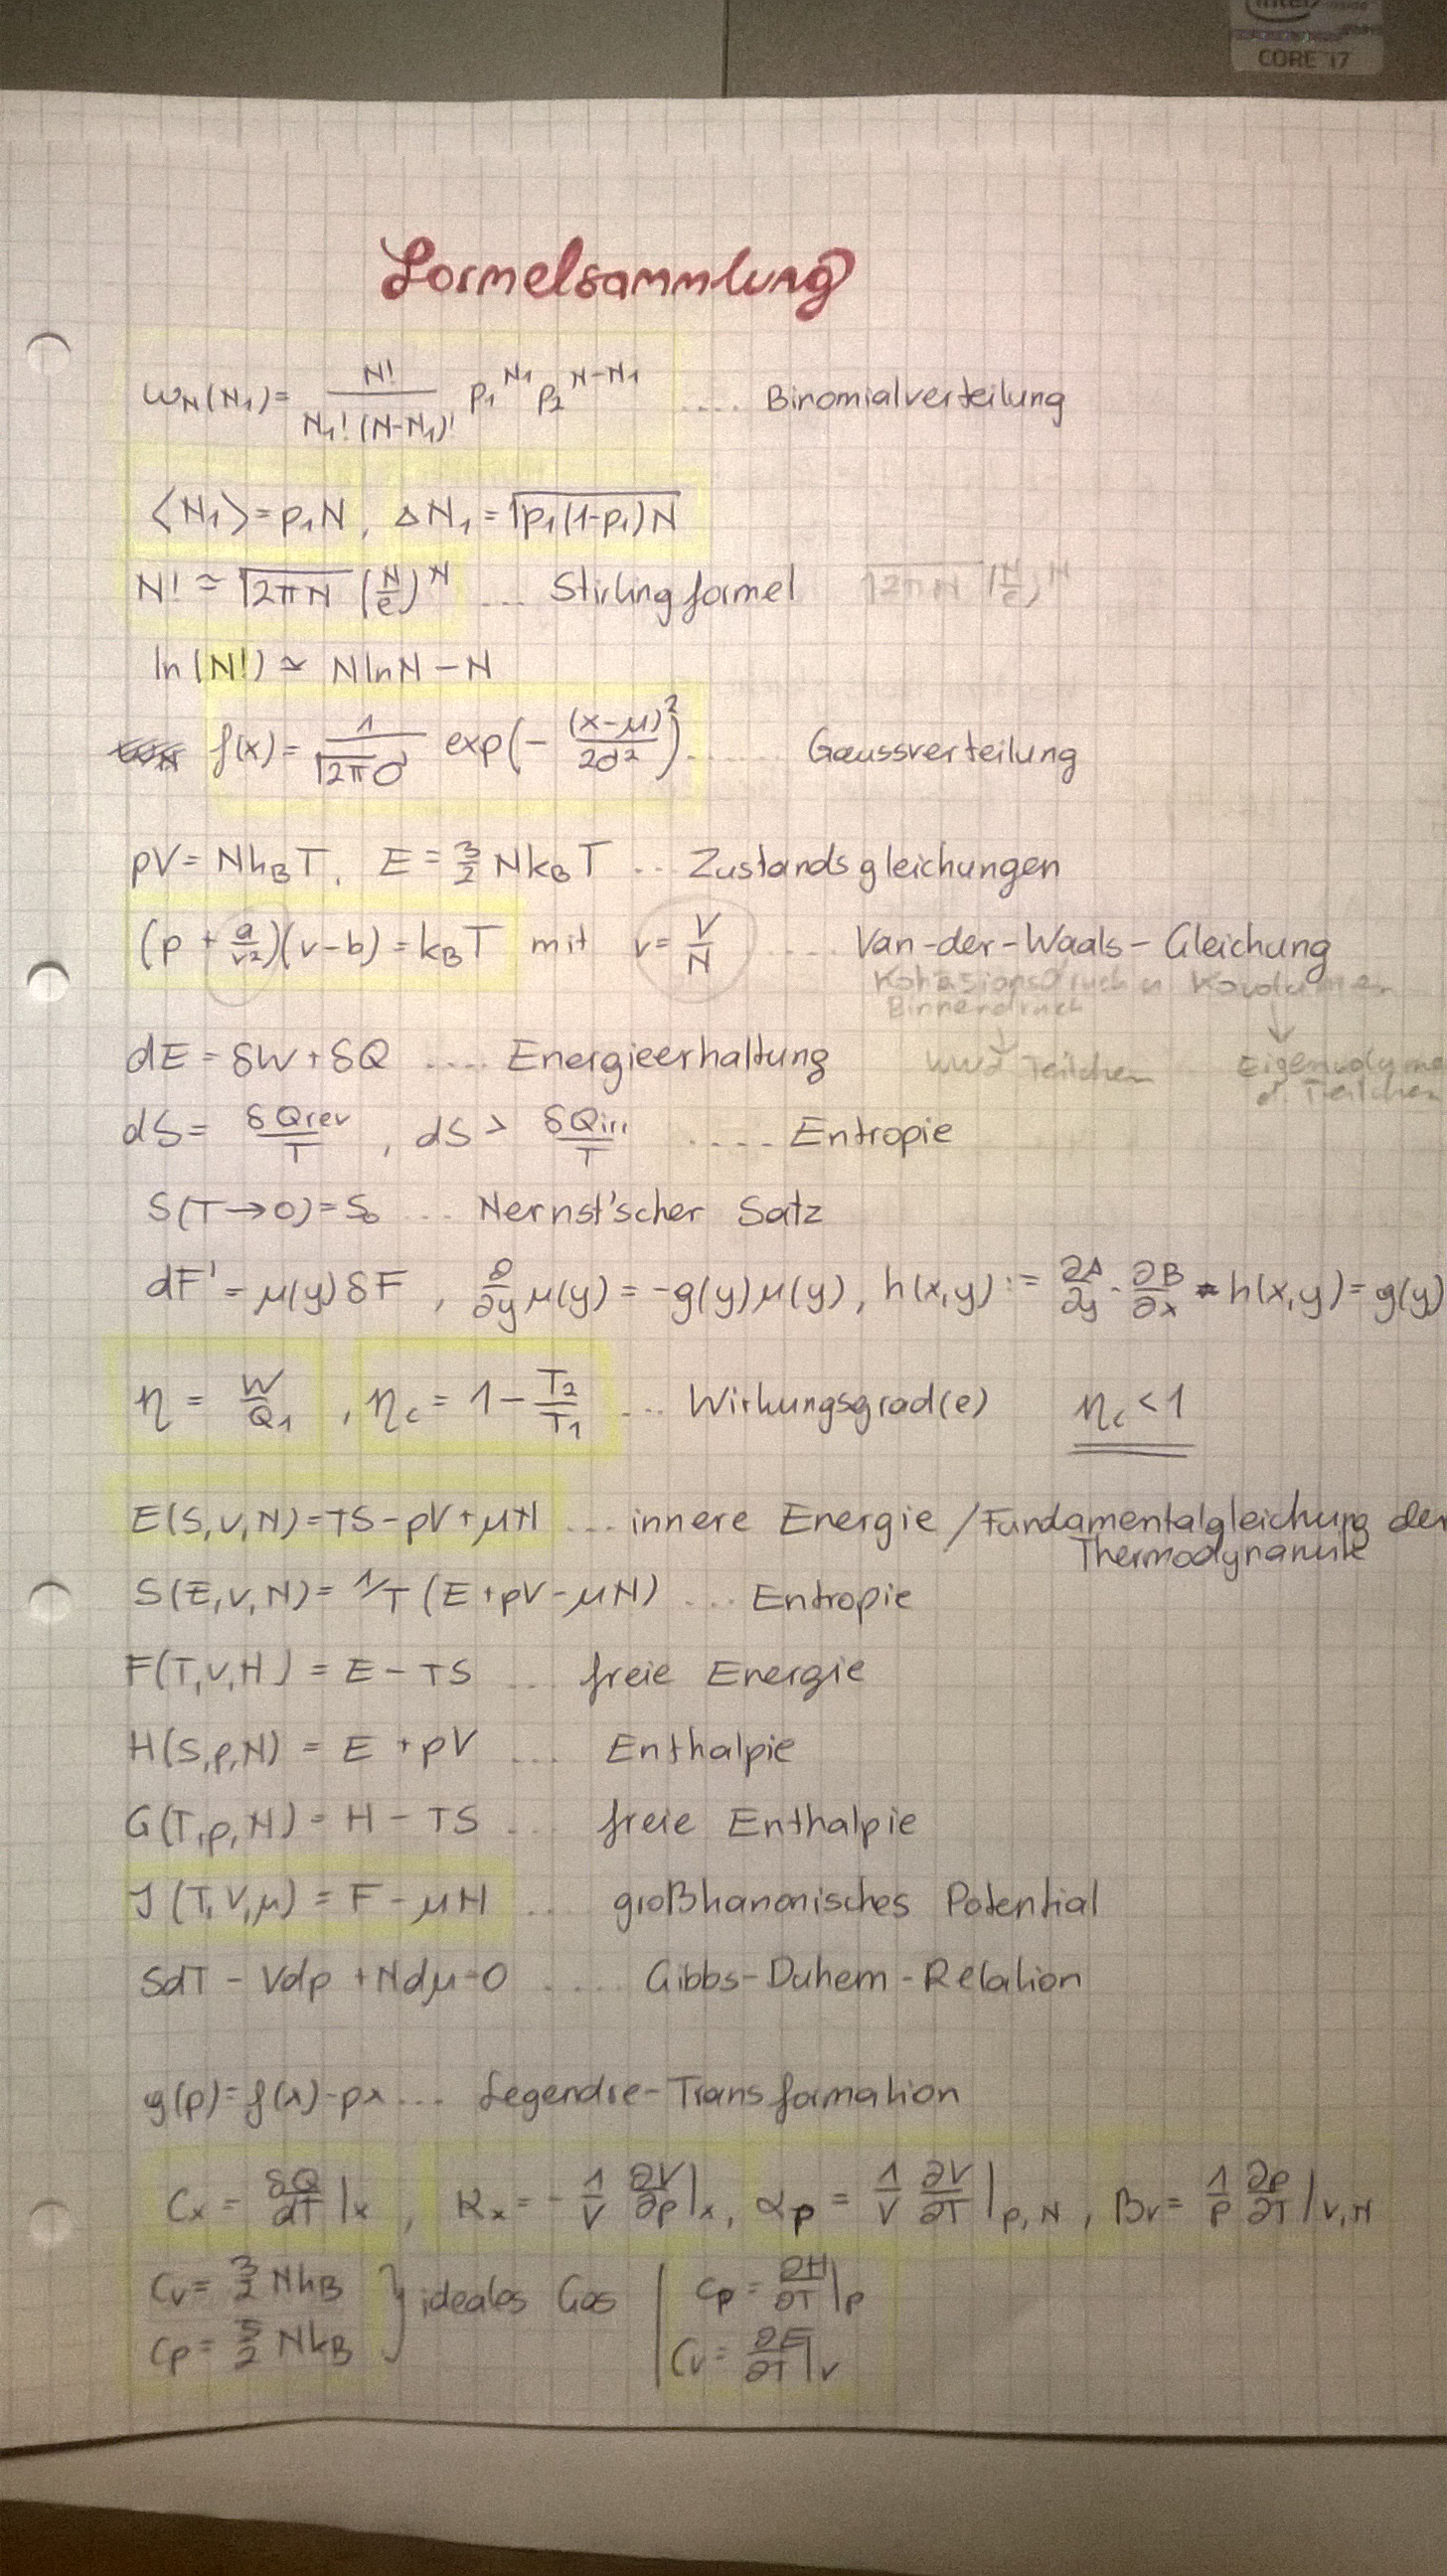 intel inside
CORE i7
Formelsammlung
ω_N(N₁) = N! / (N₁! (N-N₁)!) p₁^N₁ p₂^(N-N₁) .... Binomialverteilung
⟨N₁⟩ = p₁N, ΔN₁ = √(p₁(1-p₁)N)
N! ≃ √(2πN) (N/e)^N ... Stirlingformel √(2πN) (N/e)^N
ln(N!) ≃ N ln N - N
f(x) = 1/(√(2π)σ) exp(- (x-μ)²/2σ²) ...... Gaussverteilung
pV = Nk_BT, E = 3/2 Nk_BT ... Zustandsgleichungen
(p + a/v²)(v-b) = k_BT mit v = V/N .... Van-der-Waals-Gleichung
Kohäsionsdruck u Kovolumen
Binnendruck
↓ ↓
WW d Teilchen Eigenvolume
d. Teilchen
dE = δW + δQ .... Energieerhaltung
dS = δQrev/T, dS > δQirr/T .... Entropie
S(T→0) = S₀ ... Nernst'scher Satz
dF' = μ(y)δF, ∂/∂y μ(y) = -g(y)μ(y), h(x,y) := ∂A/∂y - ∂B/∂x h(x,y) = g(y)
η = W/Q₁, η_c = 1 - T₂/T₁ ... Wirkungsgrad(e) η_c < 1
E(S,V,N) = TS - pV + μN ... innere Energie / Fundamentalgleichung der
Thermodynamik
S(E,V,N) = 1/T (E + pV - μN) ... Entropie
F(T,V,N) = E - TS ... freie Energie
H(S,p,N) = E + pV ... Enthalpie
G(T,p,N) = H - TS ... freie Enthalpie
J(T,V,μ) = F - μN .... großkanonisches Potential
SdT - Vdp + Ndμ = 0 .... Gibbs-Duhem-Relation
g(p) = f(x) - px ... Legendre-Transformation
C_x = δQ/dT |_x, κ_x = - 1/V ∂V/∂p |_x, α_p = 1/V ∂V/∂T |_p,N, β_V = 1/p ∂p/∂T |_V,N
C_V = 3/2 Nk_B } ideales Gas | C_p = ∂H/∂T |_p
C_p = 5/2 Nk_B | C_V = ∂E/∂T |_V